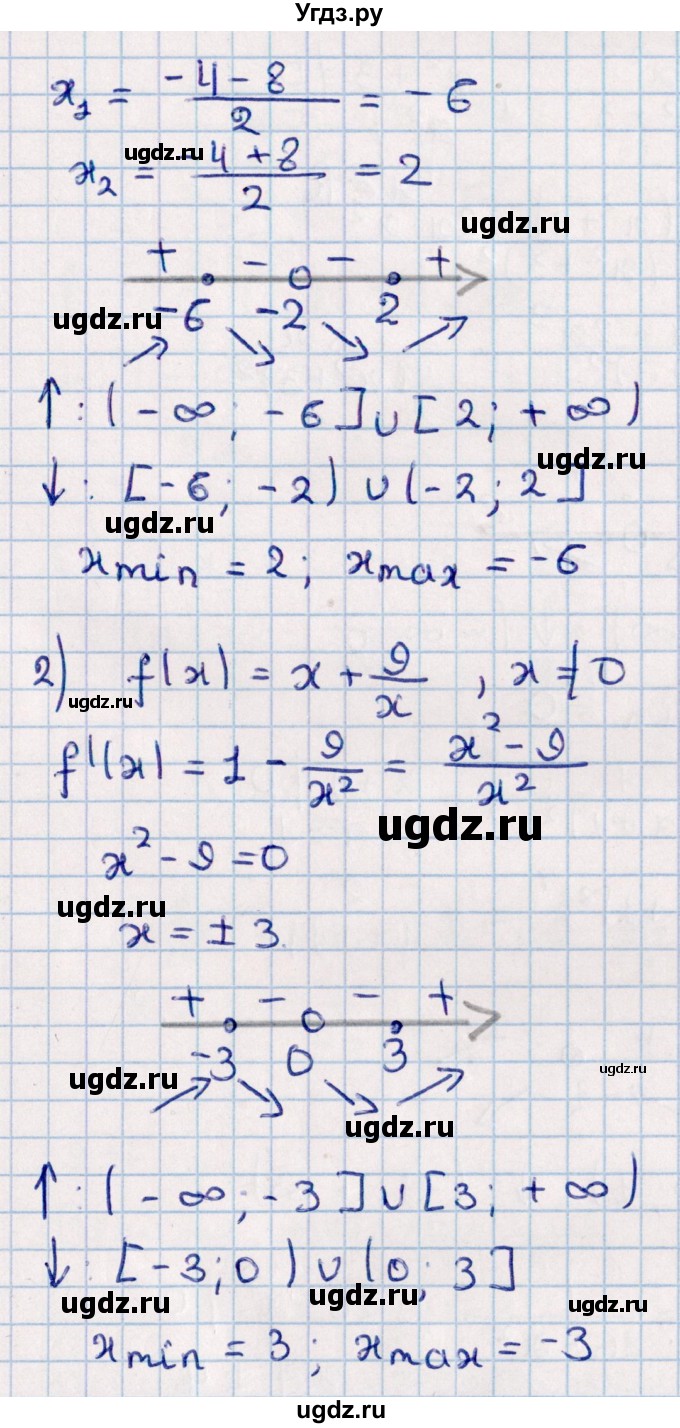 Угдз.ру
x₁ = (-4 - 8)/2 = -6
ugdz.ru
x₂ = (-4 + 8)/2 = 2
ugdz.ru
+ - - +
-6 -2 2
ugdz.ru
↗ ↘ ↘ ↗
↑: (-∞; -6] ∪ [2; +∞)
ugdz.ru
↓: [-6; -2) ∪ (-2; 2]
ugdz.ru
xmin = 2; xmax = -6
2) f(x) = x + 9/x , x ≠ 0
ugdz.ru
f'(x) = 1 - 9/x² = (x² - 9)/x²
ugdz.ru
x² - 9 = 0
ugdz.ru
x = ± 3.
+ - - +
-3 0 3
ugdz.ru ugdz.ru
↗ ↘ ↘ ↗
ugdz.ru
↑: (-∞; -3] ∪ [3; +∞)
↓: [-3; 0) ∪ (0; 3]
ugdz.ru ugdz.ru ugdz.ru
xmin = 3; xmax = -3
ugdz.ru